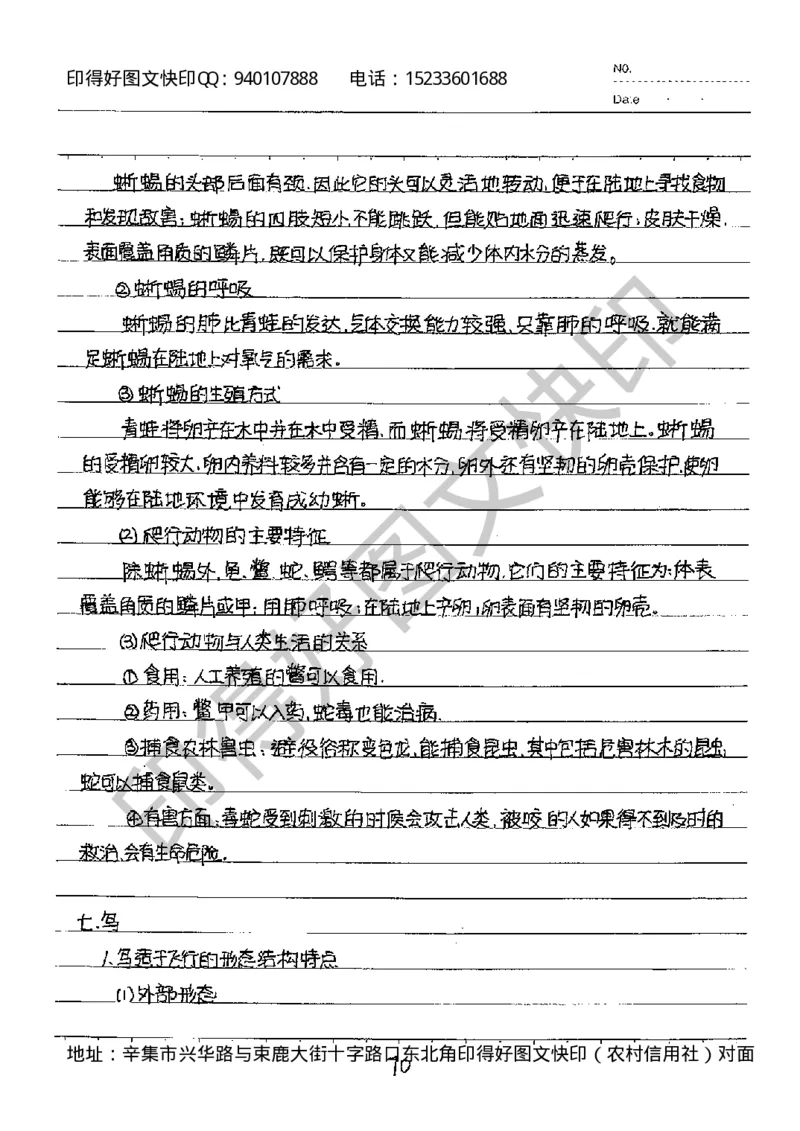 印得好图文快印QQ：940107888 电话：15233601688
NO.
Date
蜥蜴的头部后面有颈,因此它的头可以灵活地转动,便于在陆地上寻找食物
和发现敌害；蜥蜴的四肢短小,不能跳跃,但能贴地面迅速爬行；皮肤干燥,
表面覆盖角质的鳞片,既可以保护身体又能减少体内水分的蒸发。
②蜥蜴的呼吸
蜥蜴的肺比青蛙的发达,气体交换能力较强,只靠肺的呼吸,就能满
足蜥蜴在陆地上对氧气的需求。
③蜥蜴的生殖方式
青蛙将卵产在水中并在水中受精,而蜥蜴将受精卵产在陆地上。蜥蜴
的受精卵较大,卵内养料较多并含有一定的水分,卵外还有坚韧的卵壳保护,使卵
能够在陆地环境中发育成幼蜥。
(2)爬行动物的主要特征
除蜥蜴外,龟、鳖、蛇、鳄等都属于爬行动物,它们的主要特征为:体表
覆盖角质的鳞片或甲；用肺呼吸；在陆地上产卵,卵表面有坚韧的卵壳。
(3)爬行动物与人类生活的关系
①食用：人工养殖的鳖可以食用.
②药用：鳖甲可以入药,蛇毒也能治病.
③捕食农林害虫：避役俗称变色龙,能捕食昆虫,其中包括危害林木的昆虫;
蛇可以捕食鼠类。
④有害方面：毒蛇受到刺激的时候会攻击人类,被咬的人如果得不到及时的
救治,会有生命危险.
七.鸟
1.鸟适于飞行的形态结构特点
(1)外部形态
地址：辛集市兴华路与束鹿大街十字路口东北角印得好图文快印（农村信用社）对面
10
印得好图文快印